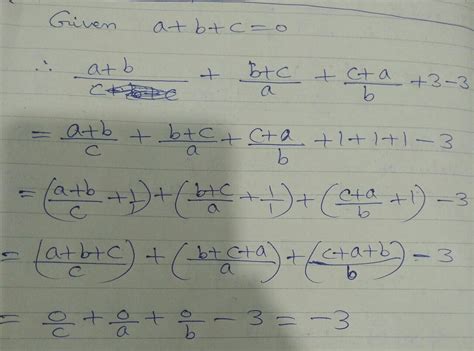 Given a+b+c=0
∴ a+b/c + b+c/a + c+a/b +3-3
= a+b/c + b+c/a + c+a/b +1+1+1-3
= (a+b/c + 1/1) + (b+c/a + 1/1) + (c+a/b +1) -3
= (a+b+c/c) + (b+c+a/a) + (c+a+b/b) -3
= 0/c + 0/a + 0/b - 3 = -3